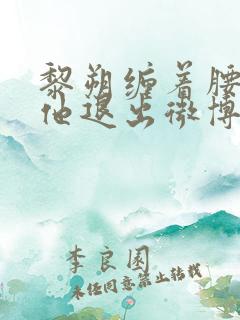 黎朔缠着腰
他退出微博
李良园
未经同意禁止转载